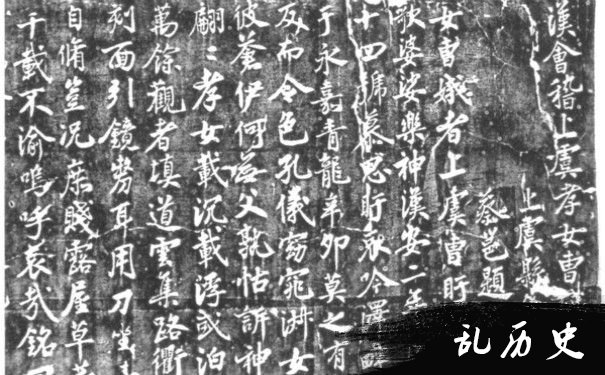 漢會稽上虞孝女曹
上虞縣
蔡邕題
女曹娥者上虞曹盱
歌婆娑樂神漢安二年
十四號慕思盱哀吟澤畔
于永嘉青龍辛卯莫之有
反而令色孔儀窈窕淑女
彼蒼伊何無父孰怙訴神
翩〻孝女載沉載浮或泊
萬餘觀者填道雲集路衢
刻面引鏡剺耳用刀坐
自脩豈況庶賤露屋草
千載不渝嗚呼哀哉銘
乱历史